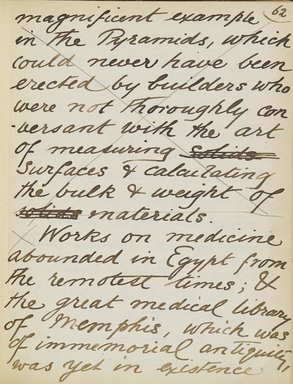 62
magnificent example
in the Pyramids, which
could never have been
erected by builders who
were not thoroughly con
-versant with the art
of measuring solids
surfaces & calculating
the bulk & weight of
materials.
Works on medicine
abounded in Egypt from
the remotest times; &
the great medical library
of Memphis, which was
of immemorial antiquity,
was yet in existence